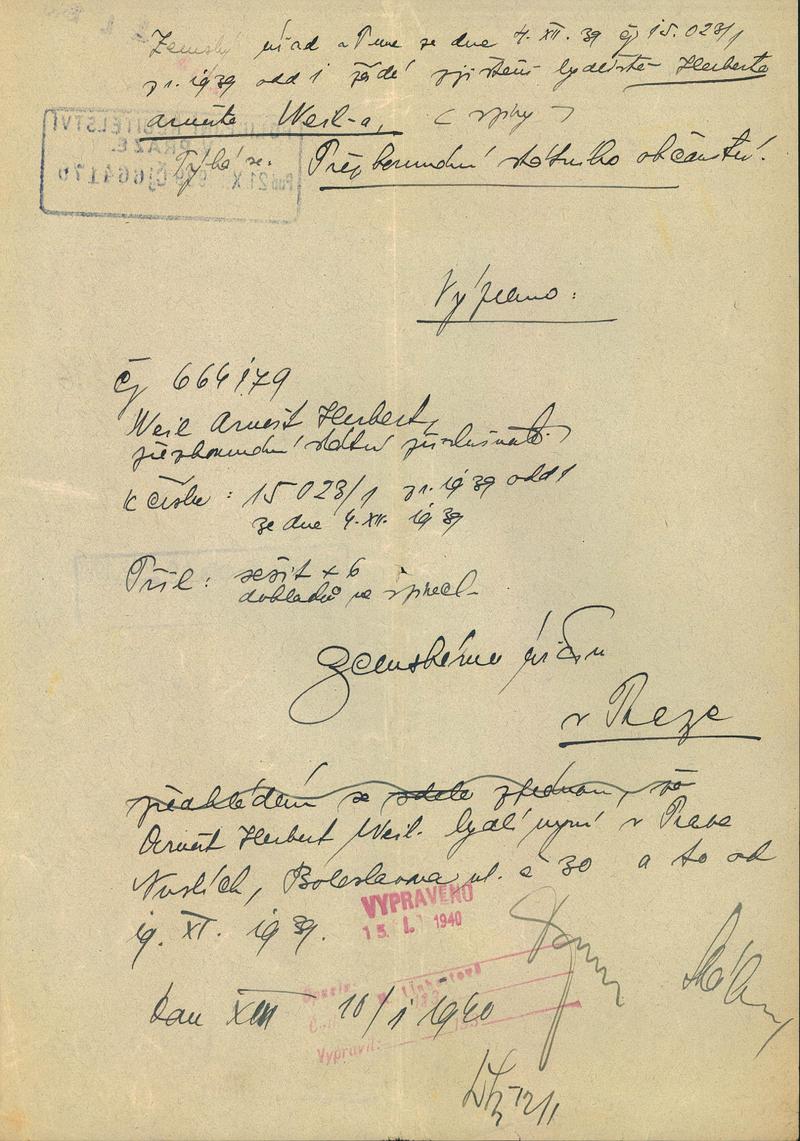 Zemský úřad v Praze ze dne 4. XII. 39 čj 15.023/1
pr. 1939 odd 1 žádá zjištění bydliště Herberta
Arnošta Weil-a, ( spisy )
Týká se: Přezkoumání státního občanství.
ŘEDITELSTVÍ
V PRAZE.
21 X čj 664179
Vypsáno:
čj 664179
Weil Arnošt Herbert,
přezkoumání státní příslušnosti.
K číslu: 15023/1 pr. 1939 odd 1
ze dne 4. XII. 1939
Příl: sešit + 6
dokladů ve spisech
Zemskému úřadu
v Praze
předkládám se sdělením, že
Arnošt Herbert Weil bydlí nyní v Praze
Nuslích, Boleslavova ul. č 30 a to od
19. XI. 1939.
VYPRAVENO
15. I. 1940
Opsala:
Vypravil:
Dan XIII 10/1 1940
12/1